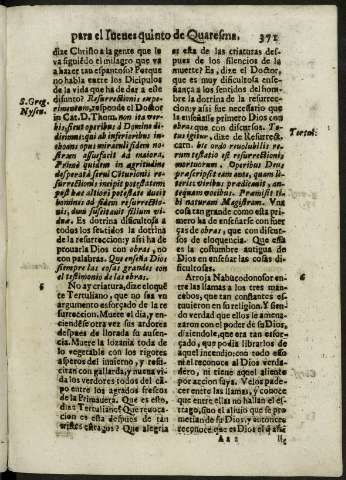 para el Iueues quinto de Quaresma. 371
dize Christo a la gente que le
va siguiẽdo el milagro que va
a hazer tan espantoso? Porque
no habla entre los Dicipulos
de la vida que ha de dar a este
difunto? Resurrectionis expe-
S. Greg.
rimentum, responde el Doctor
Nyssen.
in Cat. D. Thom. non ita ver-
bis, sicut operibus à Domino di-
dicimus; qui ab inferioribus in-
choans opus miraculi fidem no-
stram assuefacit ad maiora.
Primè quidem in agritudine
desperata serui Cẽturionis re-
surrectionis incipit potestatem;
post hac altiori potestate duxit
homines ad fidem resurrectio-
nis, dum suscitauit filium vi-
duæ. Es dotrina dificultosa a
todos los sentidos la dotrina
de la resurreccion; y assi ha de
prouarla Dios con obras, no
con palabras. Que enseña Dios
siempre las cosas grandes con
el testimonio de las obras.
6
No ay criatura, dize eloquẽ
te Tertuliano, que no sea vn
argumento esforçado de la re
surreccion. Muere el dia, y en
ciendẽse otra vez sus ardores
despues de llorada su ausen-
cia. Muere la lozania toda de
lo vegetable con los rigores
asperos del inuierno, y resti-
citan con gallarda, y nueua vi
da los verdores todos del cã-
po entre los agrados frescos
de la Primauera. Que es esto,
diuino Tertuliano? Que reuoca-
cion es esta despues de tan
tristes estragos? Que alegria
es esta de las criaturas des-
pues de los silencios de la
muerte? Es, dize el Doctor,
que es muy dificultosa ense-
ñança a los sentidos del hom-
bre la dotrina de la resurrec-
cion; y assi fue necessario que
la enseñasse primero Dios con
obras que con discursos. To-
Tertul.
tus igitur, dize de Resurrect.
carn. hic ordo reuolubilis re-
rum testatio est resurrectionis
mortuorum. Operibus Deus
præscripsit eam ante, quam li-
teris: viribus prædicauit, an-
tequam vocibus. Præmisit ti-
bi naturam Magistram. Vna
cosa tan grande como esta pri-
mero ha de enseñarse con fuer
ças de obras, que con discur-
sos de eloquencia. Que essa
es la costumbre antigua de
Dios en enseñar las cosas di-
ficultosas.
6
Arroja Nabucodonosor en-
tre las llamas a los tres man-
cebos, que tan constantes es-
tuuieron en su religion. Y sien-
do verdad que ellos le amena-
zaron con el poder de su Dios,
diziendole, que era tan esfor-
çado, que podia librarlos de
aquel incendio; con todo esso
ni el reconoce al Dios verda-
dero, ni tiene aquel aliento
por accion suya. Velos pade-
cer entre las llamas, y conoce
que entre ellas no hallan el es-
trago, sino el aliujo que se pro-
metian de su Dios, y entonces
reconoce que es Dios el q̃ assi
Aaa